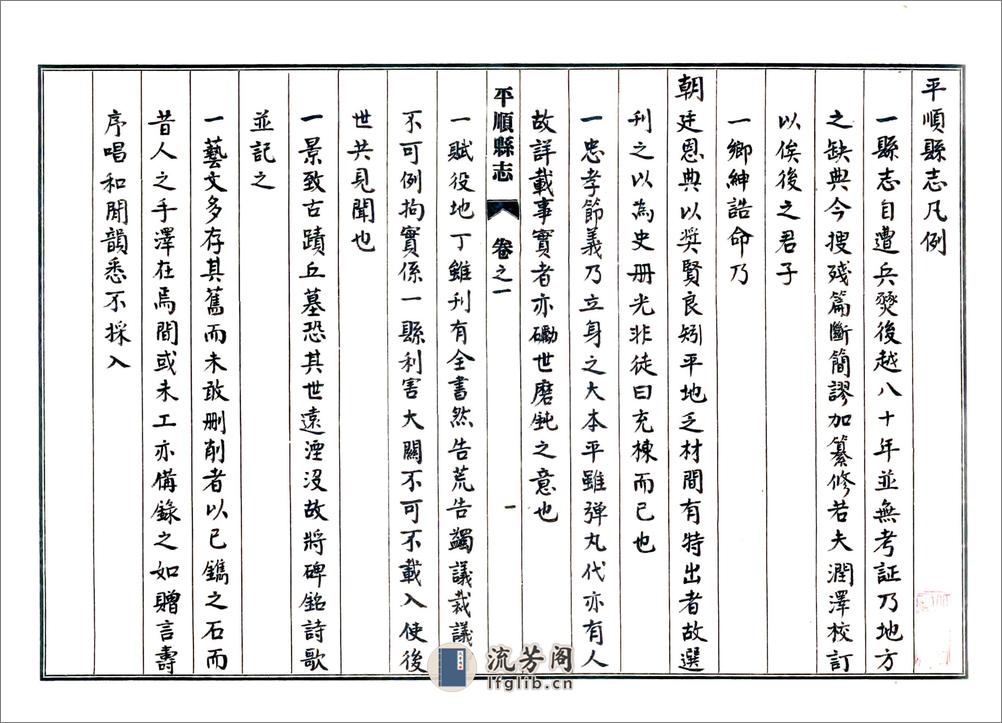 平順縣志凡例
一縣志自遭兵燹後越八十年並無考証乃地方
之缺典今搜殘篇斷簡謬加纂修若夫潤澤校訂
以俟後之君子
一鄉紳誥命乃
朝廷恩典以奖賢良矧平地乏材間有特出者故選
刊之以為史册光非徒曰充棟而已也
一忠孝節義乃立身之大本平雖弹丸代亦有人
故詳載事實者亦礪世磨鈍之意也
平順縣志 卷之一 一
一賦役地丁雖刊有全書然告荒告蠲議裁議
不可例拘實係一縣利害大關不可不載入使後
世共見聞也
一景致古蹟丘墓恐其世遠湮没故將碑銘詩歌
並記之
一藝文多存其舊而未敢删削者以已鐫之石而
昔人之手澤在焉間或未工亦備錄之如贈言壽
序唱和閒韻悉不採入
流芳阁
lfglib.cn